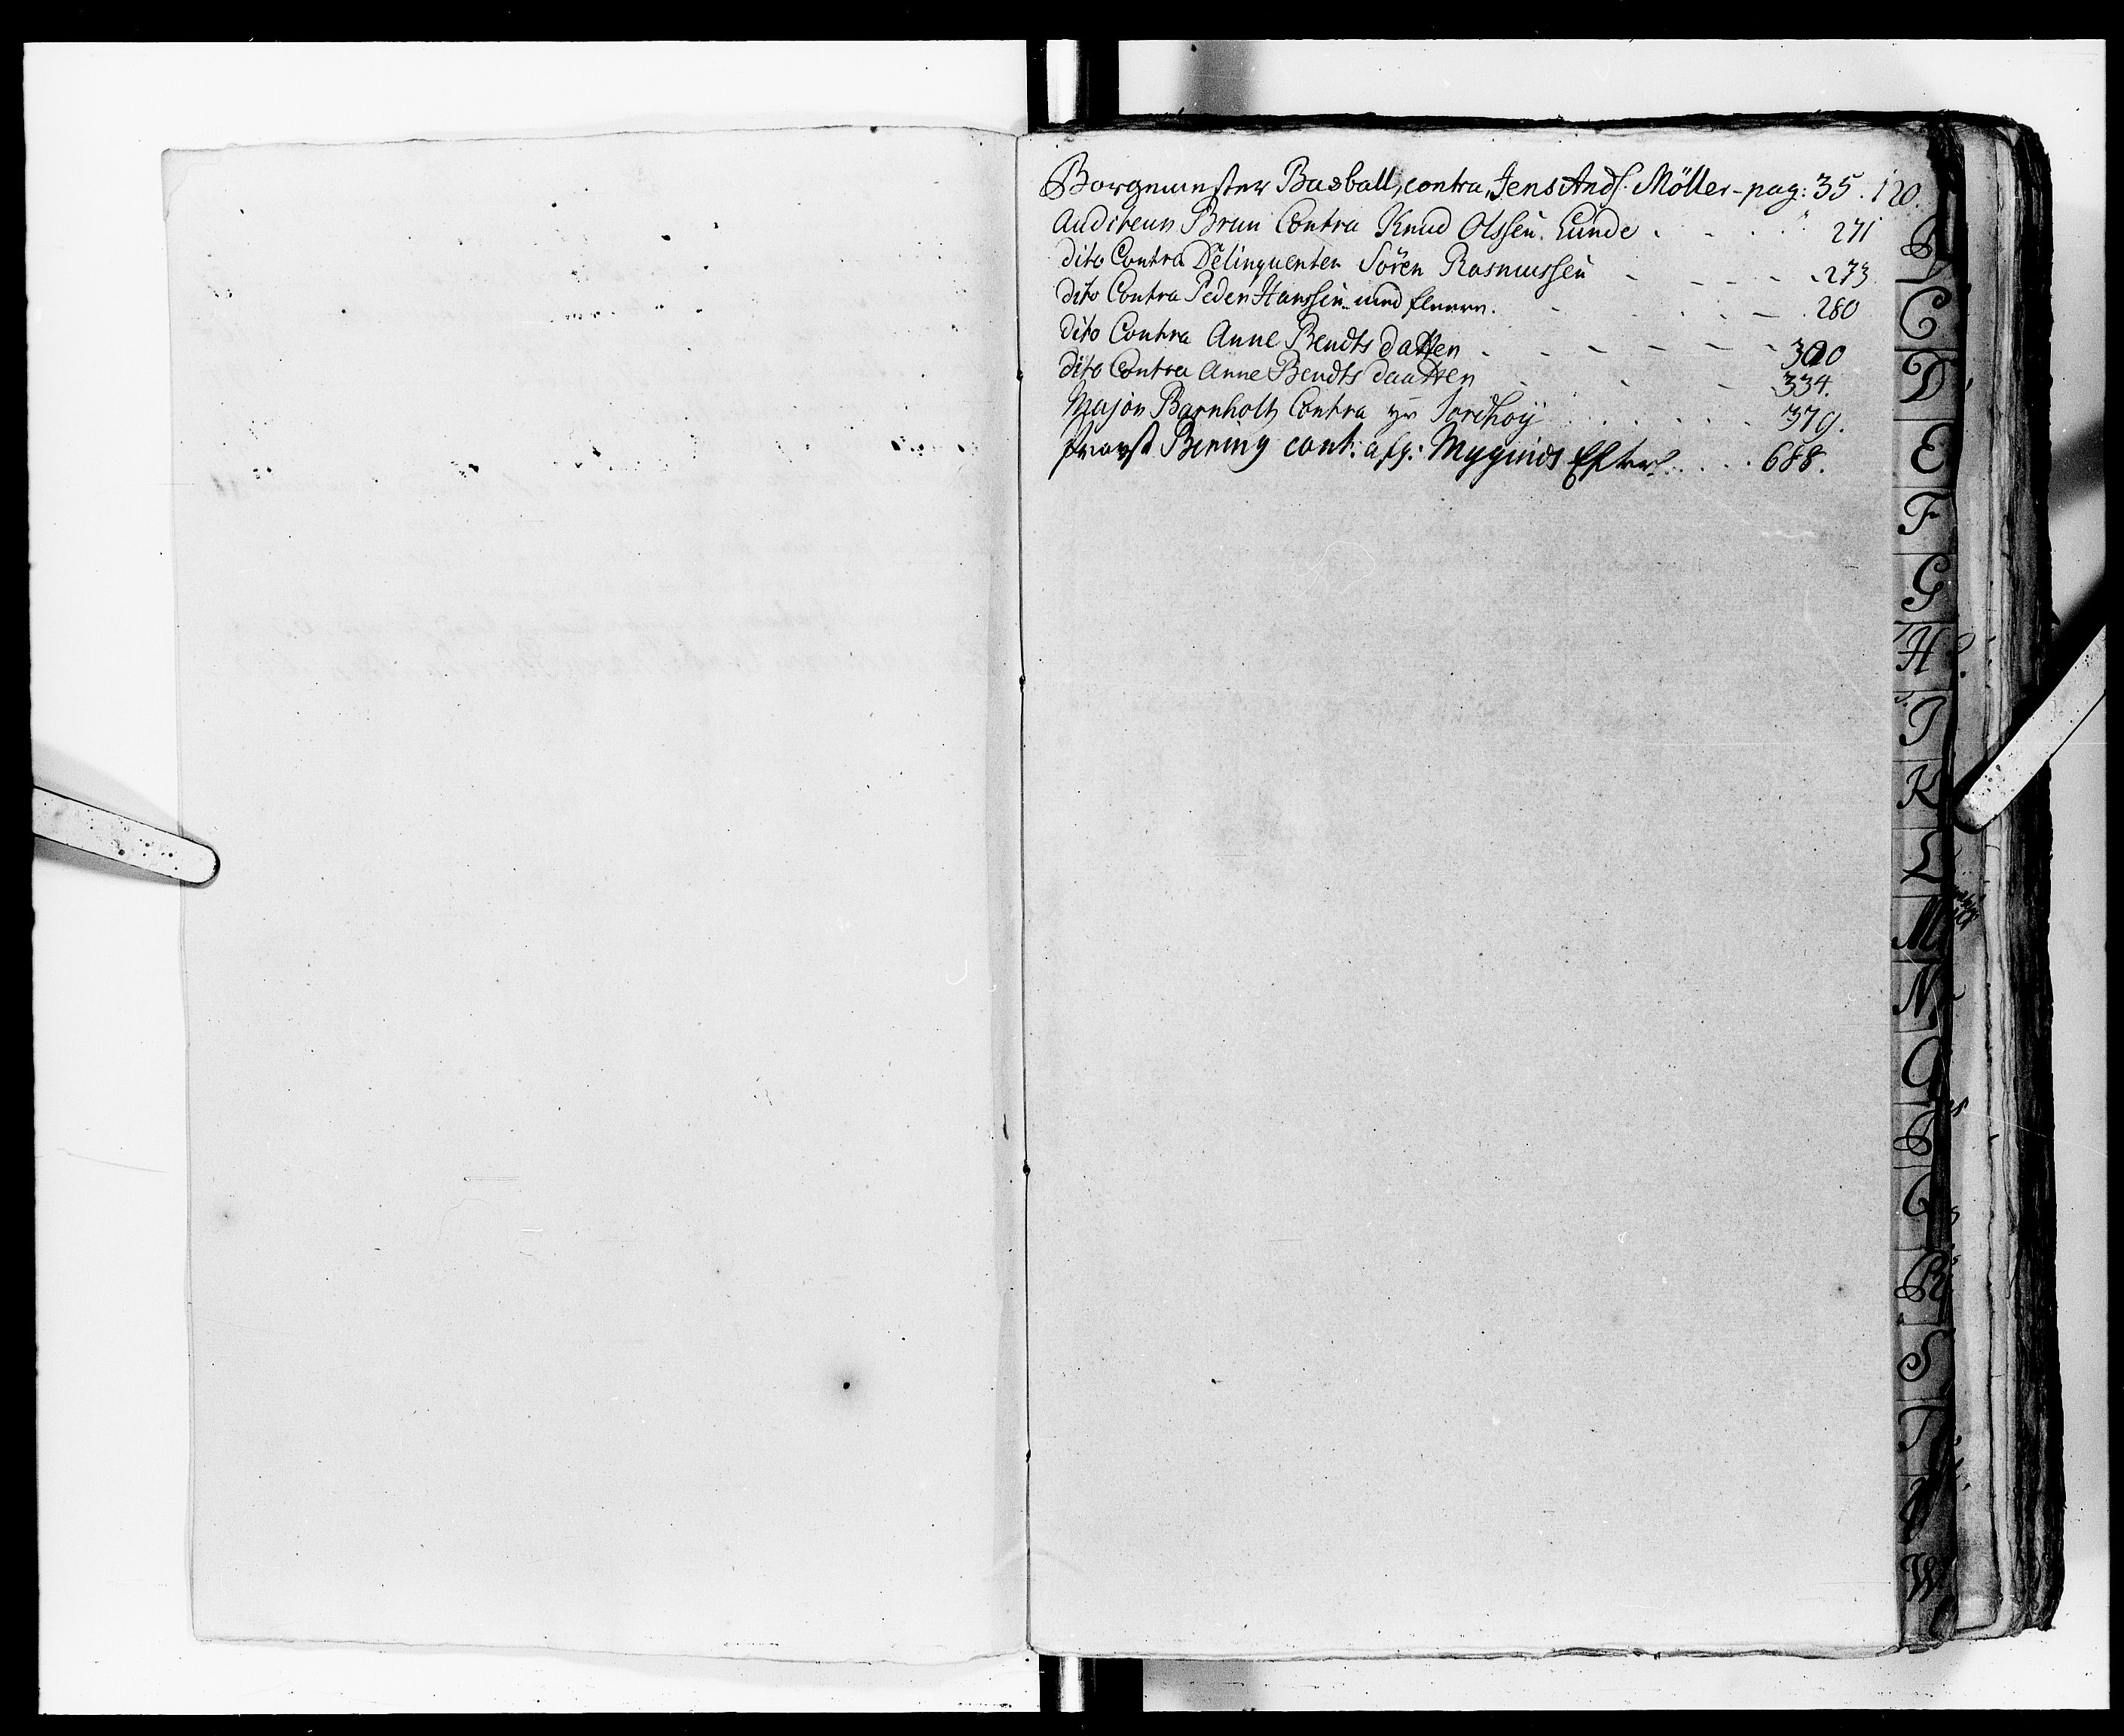 Borgemester Basball, contra, Jens Andſ. Möller - pag: 35. 120.
Auditeur Brun Contra Knud Olssen Lunde 271
dito Contra Delinquenten Sören Rasmussen 273
dito Contra Peder Hanssen med fleere. 280
dito Contra Anne Bendts datter 300
dito Contra Anne Bendts daatter 334.
Major Barnholt Contra Hr 379.
Provst Bering cont: afg: Myginds 688.
B
C
D
E
F
G
H
I
K
L
M
N
O
R
S
T
W